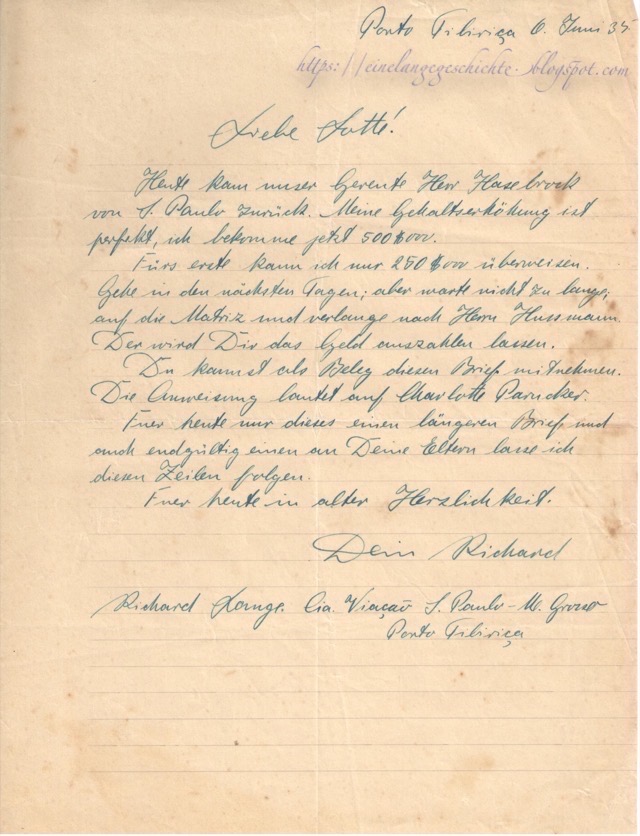 Porto Tibiriça 6. Juni 35
https://einelangegeschichte.blogspot.com
Liebe Lotte!
Heute kam unser Gerente Herr Hasebrock
von S. Paulo zurück. Meine Gehaltserhöhung ist
perfekt, ich bekomme jetzt 500$000.
Fürs erste kann ich nur 250$000 überweisen.
Gehe in den nächsten Tagen; aber warte nicht zu lange;
auf die Matriz und verlange nach Herrn Hussmann.
Der wird Dir das Geld auszahlen lassen.
Du kannst als Beleg diesen Brief mitnehmen.
Die Anweisung lautet auf Charlotte Parucker.
Fuer heute nur dieses einen längeren Brief und
auch endgültig einen an Deine Eltern lasse ich
diesen Zeilen folgen.
Fuer heute in alter Herzlichkeit.
Dein Richard
Richard Lange. Cia. Viação S. Paulo - M. Grosso
Porto Tibiriça